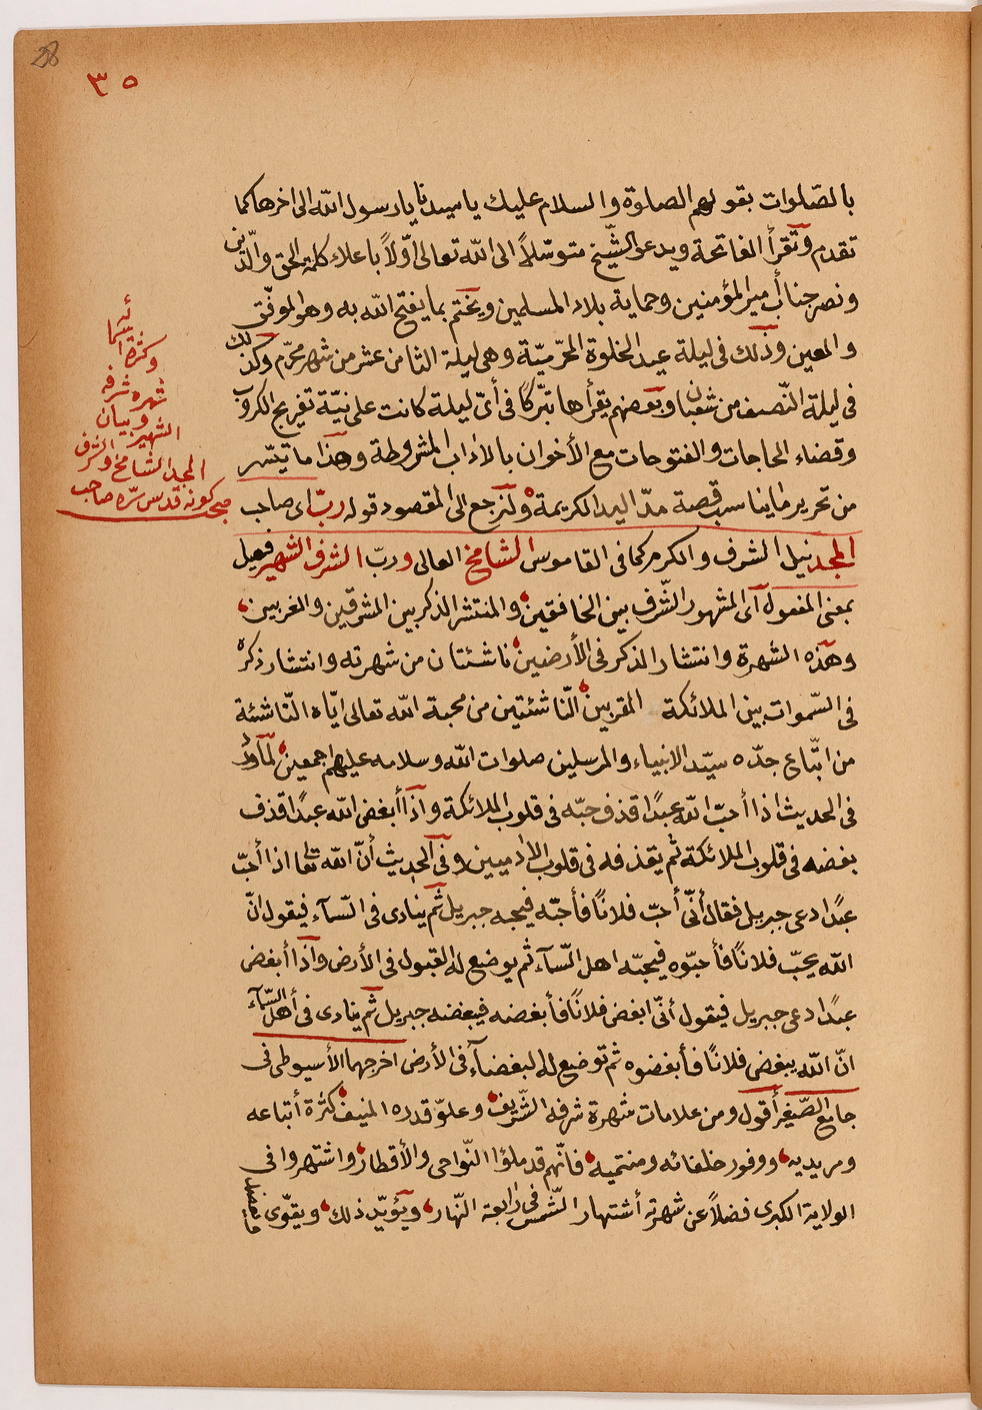 28
٣٥
بالصّلوات بقولهم الصلوة والسلام عليك يا سيدنا يا رسول الله الى اخرها كما
تقدم وتقرأ الفاتحة ويدعو الشّيخ متوسّلاً الى الله تعالى اوّلاً باعلاء كلمة الحق والدّين
ونصر جناب أمير المؤمنين وحماية بلاد المسلمين ويختم بما يفتح الله به وهو الموفّق
والمعين وذلك فى ليلة عيد الخلوة المحرّميّة وهى ليلة الثامن عشر من شهر محرّم وكذلك
فى ليلة النّصف من شعبان وبعضهم يقرأها تبّركًا فى أىّ ليلة كانت على نيّة تفريج الكروب
وقضاء الحاجات والفتوحات مع الأخوان بالاداب المشروطة وهذا ما تيسّر
من تحرير ما يناسب قصة مدّ اليد الكريمة ولنرجع الى المقصود قوله ربّ اى صاحب
المجد نيل الشرف والكرم كما فى القاموس الشامخ العالى وربّ الشرف الشهير فعيل
بمعنى المفعول أى المشهور الشّرف بين الخافقين والمنتشر الذكر بين المشرقين والمغربين
وهذه الشهرة وانتشار الذكر فى الأرضين ناشئتان من شهرته وانتشار ذكره
فى السّموات بين الملائكة المقربين النّاشئتين من محبة الله تعالى ايّاه النّاشئة
من اتّباع جدّه سيّد الانبياء والمرسلين صلوات الله وسلامه عليهم اجمعين لما ورد
فى الحديث اذا أحبّ الله عبدًا قذف حبّه فى قلوب الملائكة واذا أبغض الله عبدًا قذف
بغضه فى قلوب الملائكة ثم يقذفه فى قلوب الادميين وفى الحديث أنّ الله تعا اذا أحبّ
عبدًا دعى جبريل فقال أنّى أحبّ فلانًا فأحبّه فيحبه جبريل ثم ينادى فى السّمآء فيقول انّ
الله يحبّ فلانًا فأحبّوه فيحبّه اهل السّمآء ثم يوضع له القبول فى الأرض واذا أبغض
عبدًا دعى جبريل فيقول أنّى ابغض فلانًا فأبغضه فيبغضه جبريل ثم ينادى فى أهل السّمآء
انّ الله يبغض فلانًا فأبغضوه ثم توضع له البغضآء فى الأرض اخرجهما الأسيوطى فى
جامع الصّغير أقول ومن علامات شهرة شرفه الشّريف وعلوّ قدره المنيف كثرة أتباعه
ومريديه ووفور خلفائه ومنتميه فانّهم قد ملؤا النّواحى والأقطار واشتهروا فى
الولاية الكبرى فضلاً عن شهرته أشتهار الشّمس فى رابعة النّهار ويؤيّد ذلك ويقوّى
وكثرة
شهره شرفه
الشهير وبيان
المجد الشامخ والشرف
كونه قدس سّره صاحب